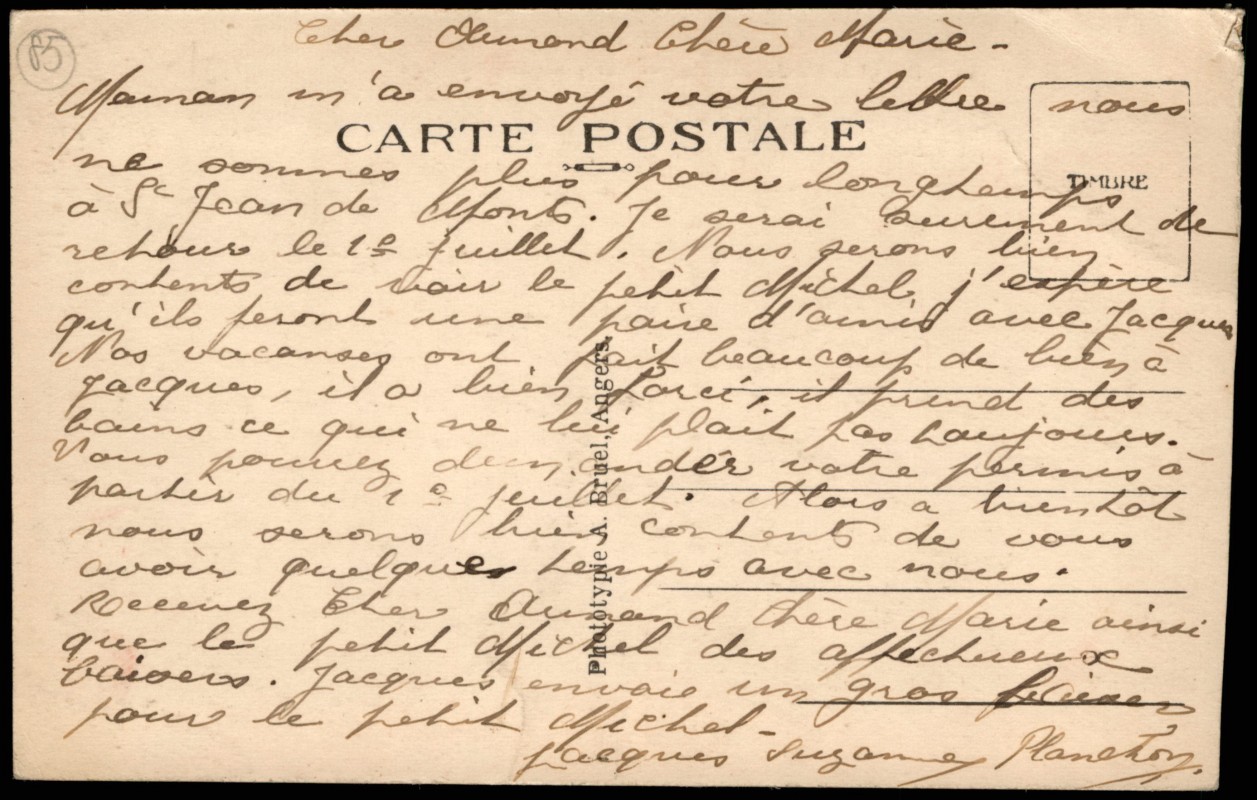 85
Cher Armand Chère Marie -
Maman m'a envoyé votre lettre nous
CARTE POSTALE
ne sommes plus pour longtemps
TIMBRE
à St Jean de Monts. Je serai surement de
retour le 1er juillet. Nous serons bien
contents de voir le petit Michel, j'espère
qu'ils feront une paire d'amis avec Jacques
Nos vacances ont fait beaucoup de bien à
Jacques, il a bien forci, il prend des
bains ce qui ne lui plait pas toujours.
Vous pouvez demander votre permis à
partir du 1er juillet. Alors a bientôt
nous serons bien contents de vous
avoir quelques temps avec nous.
Recevez Cher Armand Chère Marie ainsi
que le petit Michel des affectueux
baisers. Jacques envoie un gros baiser
pour le petit Michel -
Jacques Suzanne Planchon.
Phototypie A. Bruel, Angers.